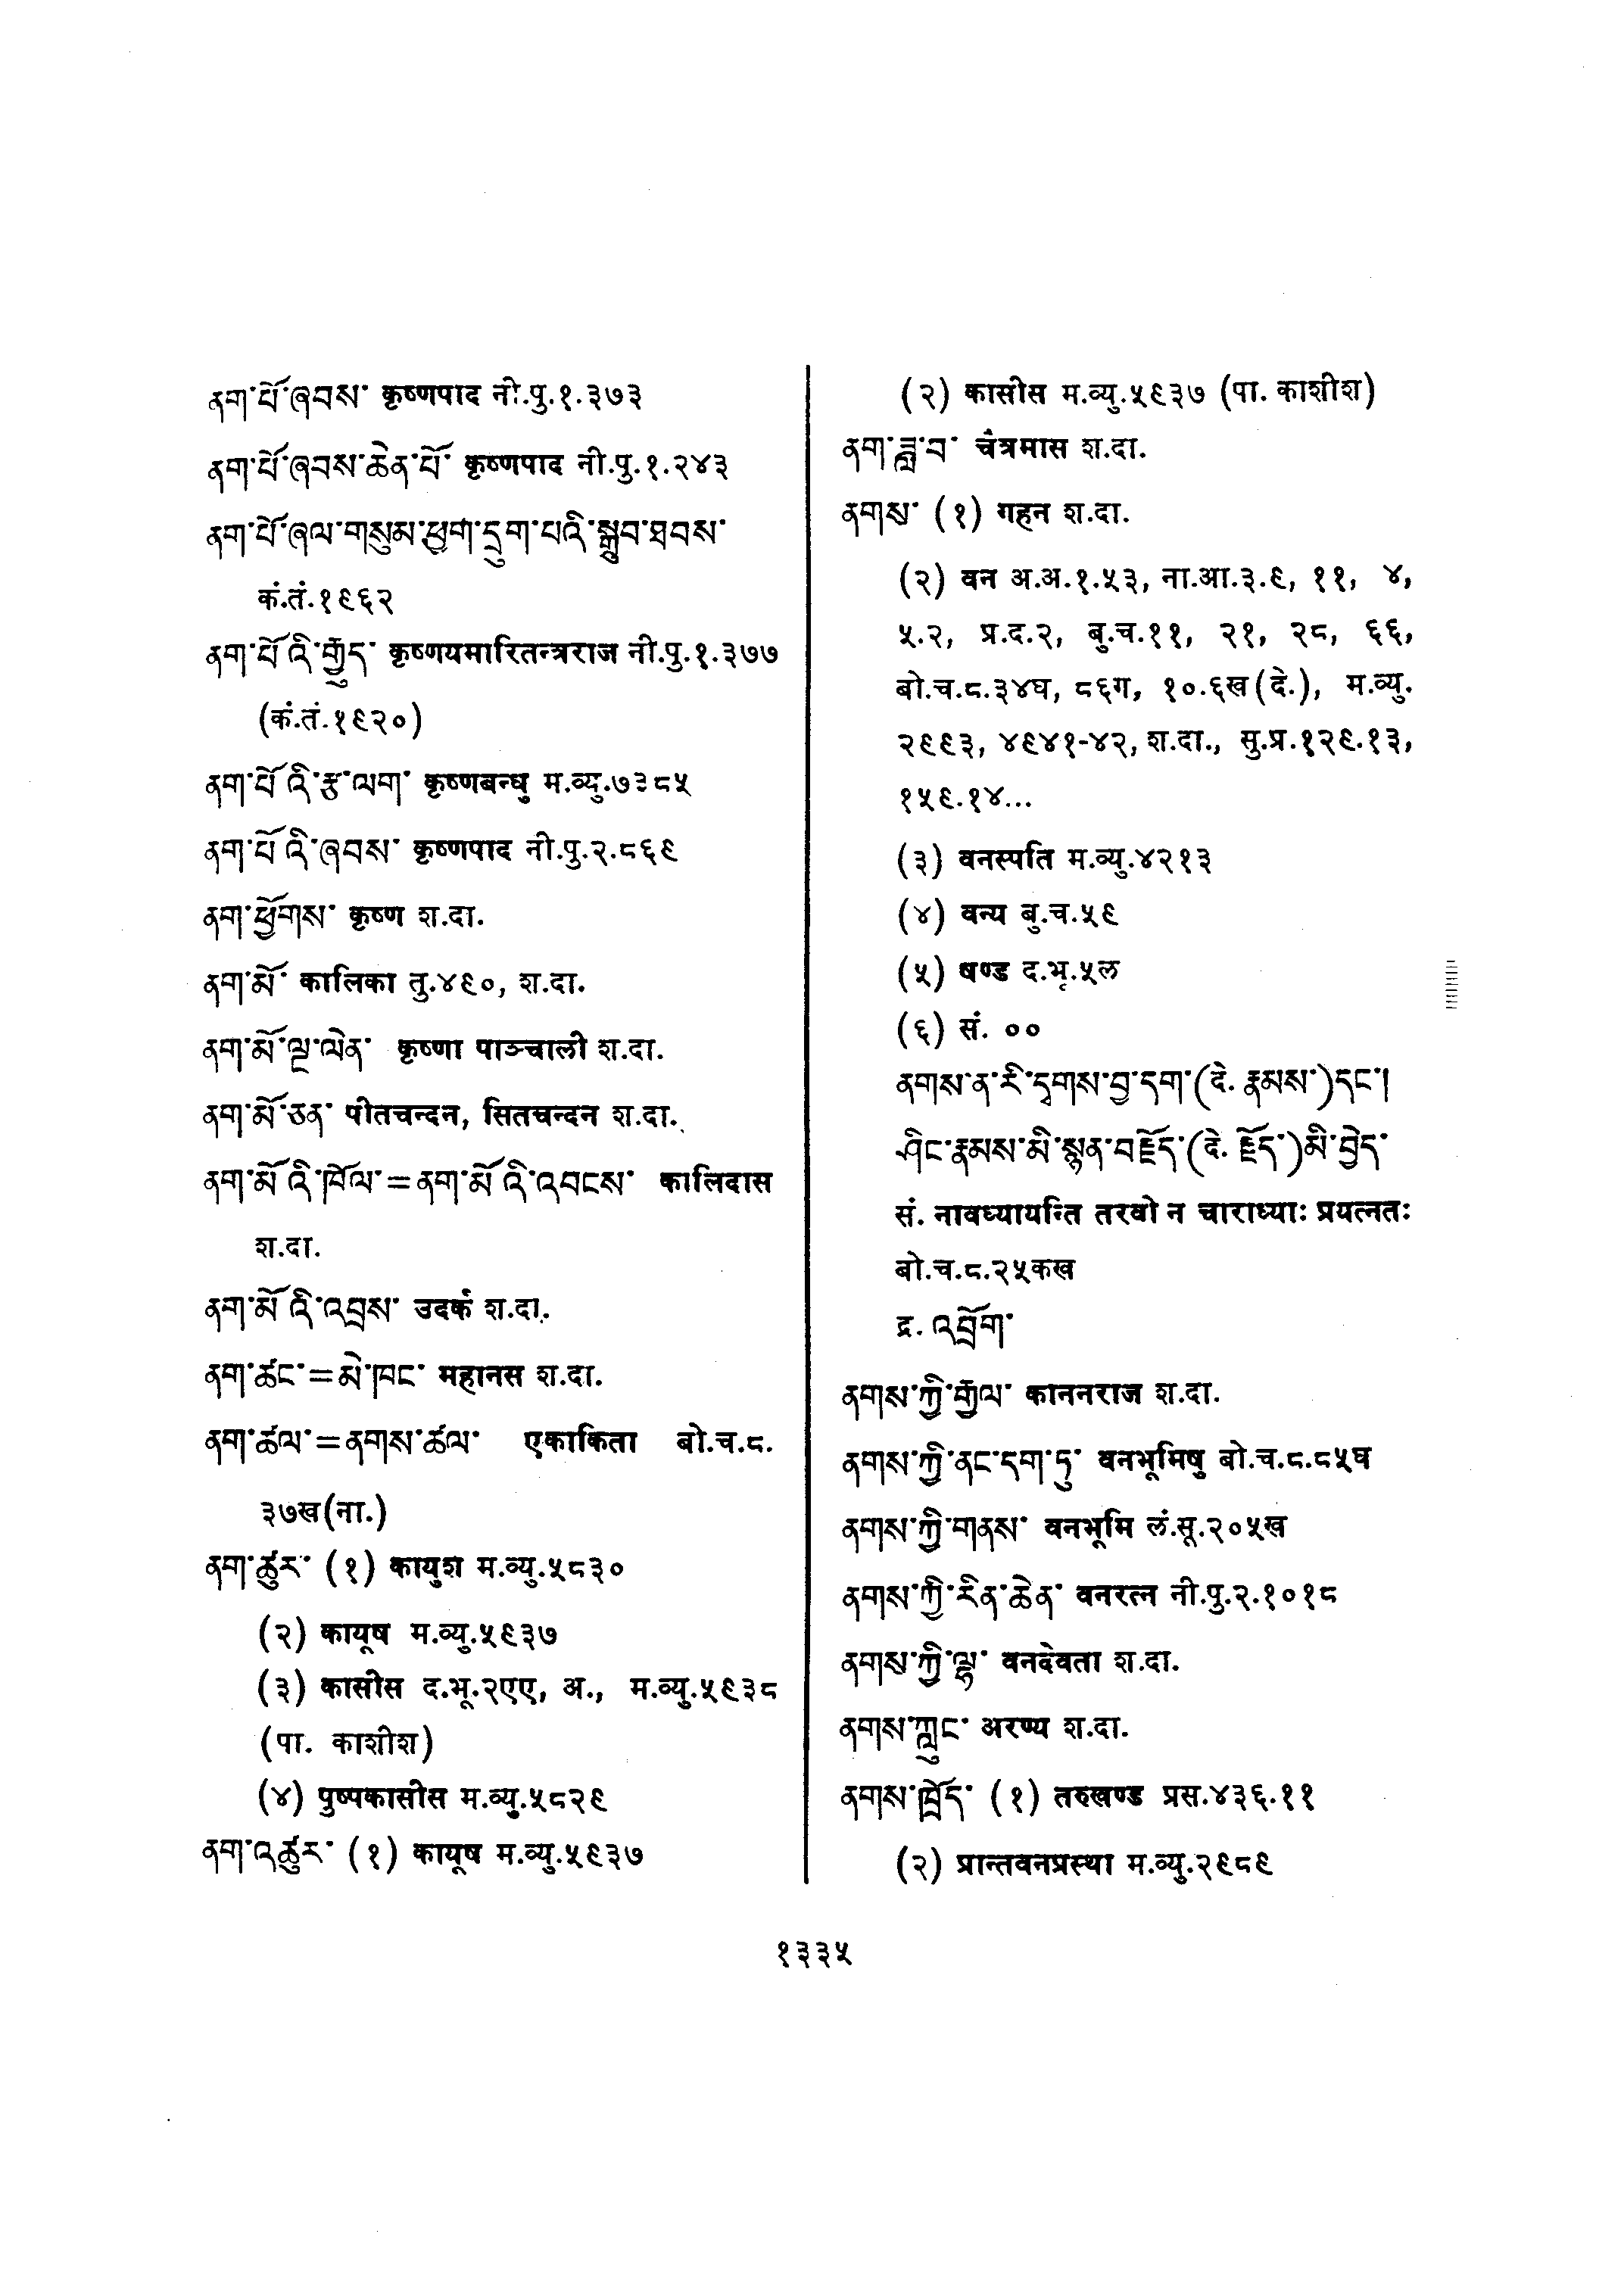 ནག་པོ་ཞབས་ कृष्णपाद नी.पु.१.३७३
ནག་པོ་ཞབས་ཆེན་པོ་ कृष्णपाद नी.पु.१.२४३
ནག་པོ་ཞལ་གསུམ་ཕྱག་དྲུག་པའི་སྒྲུབ་ཐབས་
कं.तं.१९६२
ནག་པོ་འི་རྒྱུད་ कृष्णयमारितन्त्रराज नी.पु.१.३७७
(कं.तं.१९२०)
ནག་པོ་འི་རྩ་ལག་ कृष्णबन्धु म.व्यु.७३८५
ནག་པོ་འི་ཞབས་ कृष्णपाद नी.पु.२.८६९
ནག་ཕྱོགས་ कृष्ण श.दा.
ནག་མོ་ कालिका तु.४९०, श.दा.
ནག་མོ་ལྔ་ལེན་ कृष्णा पाञ्चाली श.दा.
ནག་མོ་ཅན་ पीतचन्दन, सितचन्दन श.दा.
ནག་མོ་འི་ཁོལ་=ནག་མོ་འི་འབངས་ कालिदास
श.दा.
ནག་མོ་འི་འབྲས་ उदर्क श.दा.
ནག་ཚང་=མེ་ཁང་ महानस श.दा.
ནག་ཚལ་=ནགས་ཚལ་ एकाकिता बो.च.८.
३७ख(ना.)
ནག་ཚུར་ (१) कायुश म.व्यु.५८३०
(२) कायूष म.व्यु.५९३७
(३) कासीस द.भू.२एए, अ., म.व्यु.५९३८
(पा. काशीश)
(४) पुष्पकासीस म.व्यु.५८२९
ནག་འཚུར་ (१) कायूष म.व्यु.५९३७
(२) कासीस म.व्यु.५९३७ (पा. काशीश)
ནག་ཟླ་བ་ चैत्रमास श.दा.
ནགས་ (१) गहन श.दा.
(२) वन अ.अ.१.५३, ना.आ.३.९, ११, ४,
५.२, प्र.द.२, बु.च.११, २१, २८, ६६,
बो.च.८.३४घ, ८६ग, १०.६ख(दे.), म.व्यु.
२९९३, ४९४१-४२, श.दा., सु.प्र.१२९.१३,
१५९.१४...
(३) वनस्पति म.व्यु.४२१३
(४) वन्य बु.च.५९
(५) षण्ड द.भू.५ल
(६) सं. ००
ནགས་ན་རི་དྭགས་བྱ་དག་(दे. རྣམས་)དང་།
ཤིང་རྣམས་མི་སྙན་བརྗོད་(दे. རྗོད་)མི་བྱེད་
सं. नावध्यायन्ति तरवो न चाराध्याः प्रयत्नतः
बो.च.८.२५कख
द्र. འབྲོག་
ནགས་ཀྱི་རྒྱལ་ काननराज श.दा.
ནགས་ཀྱི་ནང་དག་ཏུ་ वनभूमिषु बो.च.८.८५घ
ནགས་ཀྱི་གནས་ वनभूमि लं.सू.२०५ख
ནགས་ཀྱི་རིན་ཆེན་ वनरत्न नी.पु.२.१०१८
ནགས་ཀྱི་ལྷ་ वनदेवता श.दा.
ནགས་ཀླུང་ अरण्य श.दा.
ནགས་ཁྲོད་ (१) तरुखण्ड प्रस.४३६.११
(२) प्रान्तवनप्रस्था म.व्यु.२९८९
१३३५